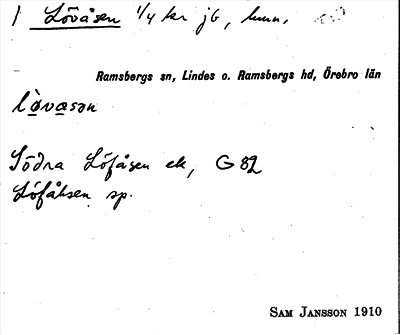 1 Lövåsen 1/4 kr jb, hmn,
Ramsbergs sn, Lindes o. Ramsbergs hd, Örebro län
lø̀vasən
Södra Löfåsen ek, G 82
Löfåhsen sp.
SAM JANSSON 1910